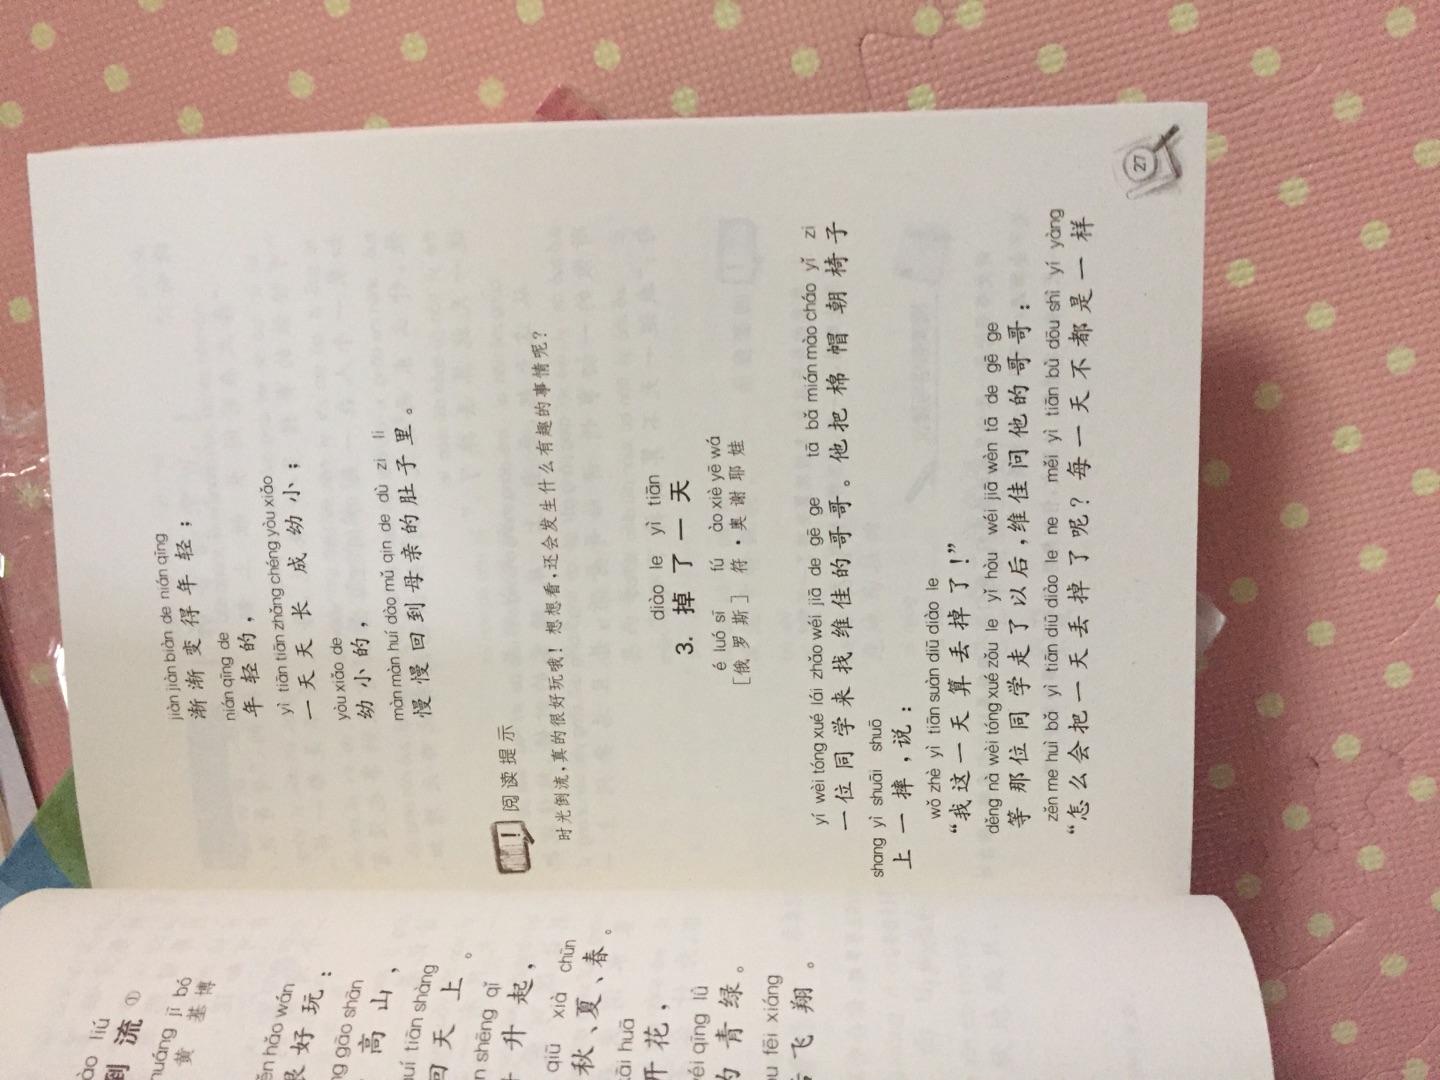 ào liú
倒 流 ①
huáng jī bó
黄 基 博
ěn hǎo wán
很 好 玩：
ng gāo shān
高 山，
uí tiān shàng
回 天 上。
n shēng qǐ
升 起，
qiū xià chūn
秋、夏、春。
kāi huā
开 花，
wéi qīng lǜ
的 青 绿。
fēi xiáng
飞 翔。
jiàn jiàn biàn de nián qīng
渐 渐 变 得 年 轻；
nián qīng de
年 轻 的，
yì tiān tiān zhǎng chéng yòu xiǎo
一 天 天 长 成 幼 小；
yòu xiǎo de
幼 小 的，
màn màn huí dào mǔ qīn de dù zi li
慢 慢 回 到 母 亲 的 肚 子 里。
阅读提示
时光倒流，真的很好玩哦！想想看，还会发生什么有趣的事情呢？
diào le yì tiān
3. 掉 了 一 天
é luó sī fú ào xiè yē wá
［俄 罗 斯］符·奥 谢 耶 娃
yí wèi tóng xué lái zhǎo wéi jiā de gē ge tā bǎ mián mào cháo yǐ zi
一 位 同 学 来 找 维 佳 的 哥 哥。他 把 棉 帽 朝 椅 子
shang yì shuāi shuō
上 一 摔，说：
wǒ zhè yì tiān suàn diū diào le
“我 这 一 天 算 丢 掉 了！”
děng nà wèi tóng xué zǒu le yǐ hòu wéi jiā wèn tā de gē ge
等 那 位 同 学 走 了 以 后，维 佳 问 他 的 哥 哥：
zěn me huì bǎ yì tiān diū diào le ne měi yì tiān bù dōu shì yí yàng
“怎 么 会 把 一 天 丢 掉 了 呢？每 一 天 不 都 是 一 样
27